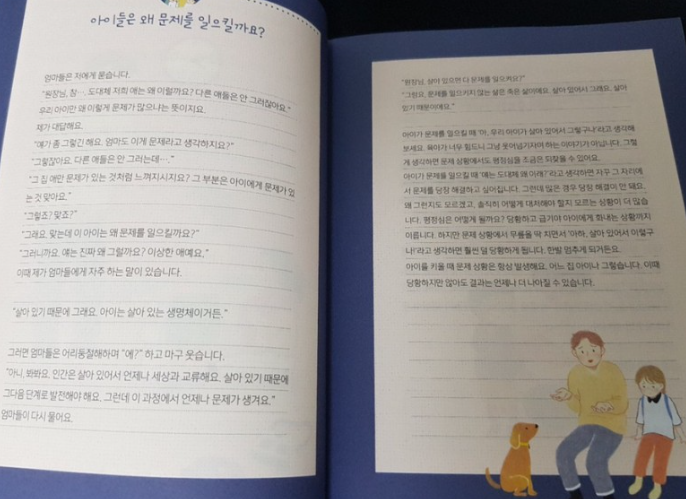 아이들은 왜 문제를 일으킬까요?
엄마들은 저에게 묻습니다.
"원장님, 참…, 도대체 저희 애는 왜 이럴까요? 다른 애들은 안 그러잖아요."
우리 아이만 왜 이렇게 문제가 많으냐는 뜻이지요.
제가 대답해요.
"얘가 좀 그렇긴 해요. 엄마도 이게 문제라고 생각하지요?"
"그렇잖아요. 다른 애들은 안 그러는데…."
"그 집 애만 문제가 있는 것처럼 느껴지시지요? 그 부분은 아이에게 문제가 있
는 것 맞아요."
"그렇죠? 맞죠?"
"그래요. 맞는데 이 아이는 왜 문제를 일으킬까요?"
"그러니까요. 얘는 진짜 왜 그럴까요? 이상한 애예요."
이때 제가 엄마들에게 자주 하는 말이 있습니다.
"살아 있기 때문에 그래요. 아이는 살아 있는 생명체이거든."
그러면 엄마들은 어리둥절해하며 "예?" 하고 마구 웃습니다.
"아니, 봐봐요. 인간은 살아 있어서 언제나 세상과 교류해요. 살아 있기 때문에
그다음 단계로 발전해야 해요. 그런데 이 과정에서 언제나 문제가 생겨요."
엄마들이 다시 물어요.
"원장님, 살아 있으면 다 문제를 일으켜요?"
"그럼요. 문제를 일으키지 않는 삶은 죽은 삶이에요. 살아 있어서 그래요. 살아
있기 때문이에요."
아이가 문제를 일으킬 때 '아, 우리 아이가 살아 있어서 그렇구나'라고 생각해
보세요. 육아가 너무 힘드니 그냥 웃어넘기자며 하는 이야기가 아닙니다. 그렇
게 생각하면 문제 상황에서도 평정심을 조금은 되찾을 수 있어요.
아이가 문제를 일으킬 때 '얘는 도대체 왜 이래?'라고 생각하면 자꾸 그 자리에
서 문제를 당장 해결하고 싶어집니다. 그런데 많은 경우 당장 해결이 안 돼요.
왜 그런지도 모르겠고, 솔직히 어떻게 대처해야 할지 모르는 상황이 더 많습
니다. 평정심은 어떻게 될까요? 당황하고 급기야 아이에게 화내는 상황까지
이릅니다. 하지만 문제 상황에서 무릎을 딱 치면서 '아하, 살아 있어서 이렇구
나!'라고 생각하면 훨씬 덜 당황하게 됩니다. 한발 멈추게 되거든요.
아이를 키울 때 문제 상황은 항상 발생해요. 어느 집 아이나 그렇습니다. 이때
당황하지만 않아도 결과는 언제나 더 나아질 수 있습니다.